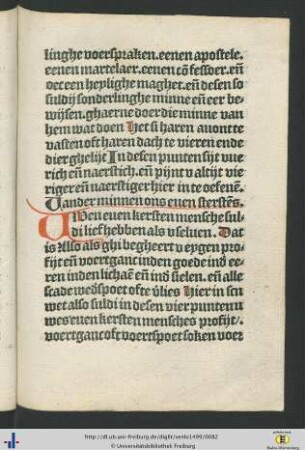 linghe voerspraken.eenen apostele.
eenen martelaer.eenen cō fessoer.eñ
oec een heylighe maghet.eñ desen so
suldij sonderlinghe minne eñ eer be-
wijsen.ghaerne doer die minne van
hem wat doen Het si haren auont te
vasten oft haren dach te vieren ende
dierghelijt In desen punten sijt vue
rich eñ naerstich.eñ pijnt v altijt vie
riger eñ naerstiger hier in te oefenē.
Van der minnen ons euen kerstēs.
Uwen euen kersten mensche sul-
di lief hebben als v seluen. Dat
is Also als ghi begheert v eygen pro-
fijt eñ voertganc inden goede inđ ee-
ren inden lichaē eñ inđ sielen. eñ alle
scade wedspoet ofte v̄lies Hier in sen
wet also suldi in desen vier punten u
wes euen kersten mensches profijt/.
voertganc oft voertspoet soken voer
http://dl.ub.uni-freiburg.de/diglit/ventlo1499/0082
© Universitätsbibliothek Freiburg